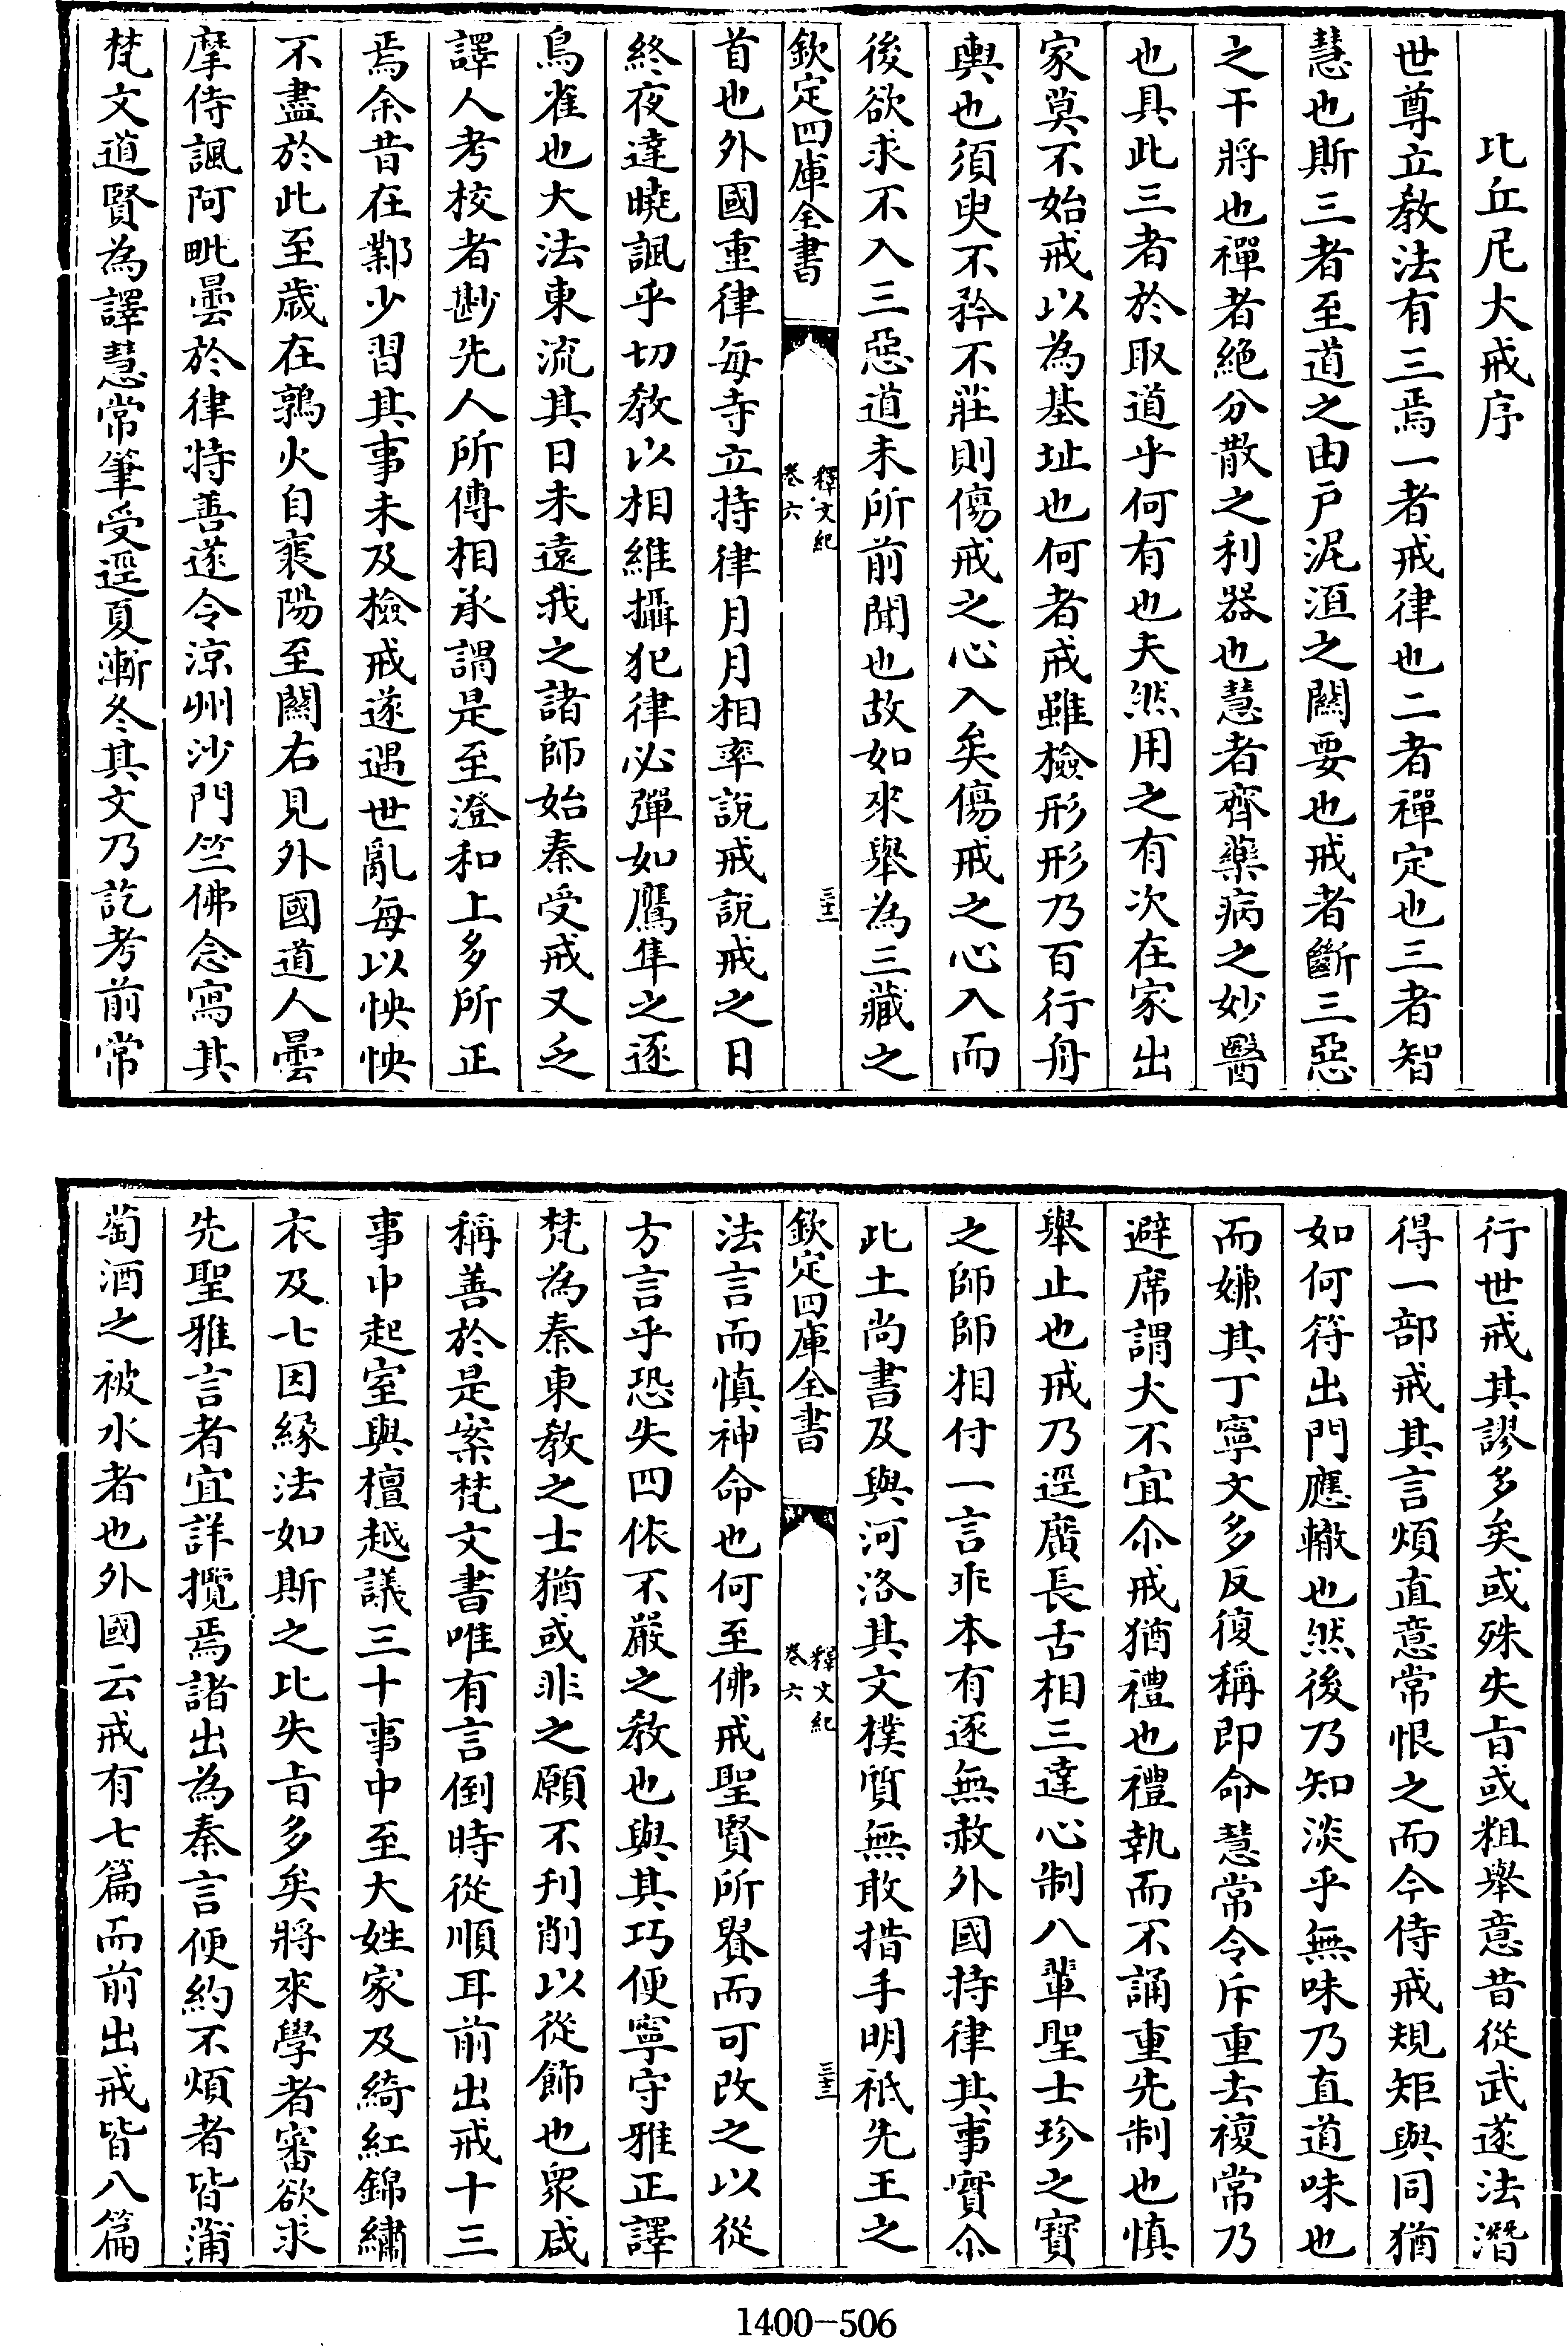 比丘尼大戒序
世尊立教法有三焉一者戒律也二者禪定也三者智
慧也斯三者至道之由戶泥洹之關要也戒者斷三惡
之干將也禪者絶分散之利器也慧者齊藥病之妙醫
也具此三者於取道乎何有也夫然用之有次在家出
家莫不始戒以為基址也何者戒雖檢形形乃百行舟
輿也須臾不矜不莊則傷戒之心入矣傷戒之心入而
後欲求不入三惡道未所前聞也故如來舉為三藏之
欽定四庫全書
釋文紀
卷六
三十一
首也外國重律每寺立持律月月相率說戒說戒之日
終夜達曉諷乎切教以相維攝犯律必彈如鷹隼之逐
鳥雀也大法東流其日未遠我之諸師始秦受戒又乏
譯人考校者尠先人所傳相承謂是至澄和上多所正
焉余昔在鄴少習其事未及檢戒遂遇世亂每以怏怏
不盡於此至歲在鶉火自襄陽至關右見外國道人曇
摩侍諷阿毗曇於律特善遂令涼州沙門竺佛念寫其
梵文道賢為譯慧常筆受逕夏漸冬其文乃訖考前常
行世戒其謬多矣或殊失旨或粗舉意昔從武遂法潛
得一部戒其言煩直意常恨之而今侍戒規矩與同猶
如何符出門應轍也然後乃知淡乎無味乃直道味也
而嫌其丁寧文多反復稱即命慧常令斥重去複常乃
避席謂大不宜尒戒猶禮也禮執而不誦重先制也慎
舉止也戒乃逕廣長舌相三達心制八輩聖士珍之寶
之師師相付一言乖本有逐無赦外國持律其事實尒
此土尚書及與河洛其文樸質無敢措手明祇先王之
欽定四庫全書
釋文紀
卷六
三十二
法言而慎神命也何至佛戒聖賢所貴而可改之以從
方言乎恐失四依不嚴之教也與其巧便寧守雅正譯
梵為秦東教之士猶或非之願不刊削以從飾也衆咸
稱善於是案梵文書唯有言倒時從順耳前出戒十三
事中起室與檀越議三十事中至大姓家及綺紅錦繡
衣及七因緣法如斯之比失旨多矣將來學者審欲求
先聖雅言者宜詳攬焉諸出為秦言便約不煩者皆蒲
萄酒之被水者也外國云戒有七篇而前出戒皆八篇
1400-506